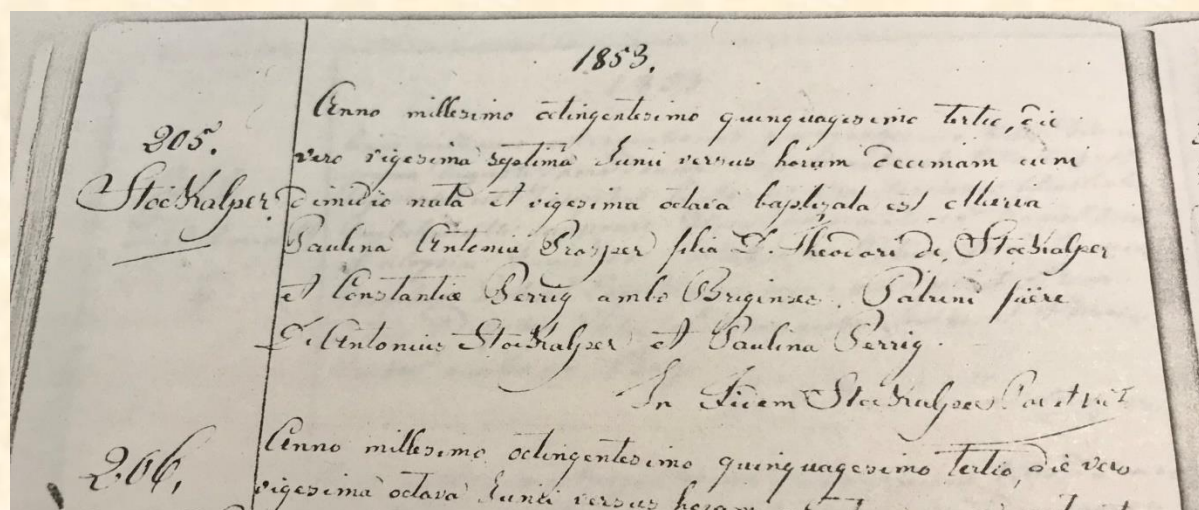 1853.
205.
Stockalper
Anno millesimo octingentesimo quinquagesimo tertio, die
vero vigesima septima Junii versus horam decimam cum
dimidio nata et vigesima octava baptizata est Maria
Paulina Antonia Prosper filia D. Theodori de Stockalper
et Constantiæ Perrig ambo Brigenses. Patrini fuere
D. Antonius Stockalper et Paulina Perrig.
In fidem Stockalper
206.
Anno millesimo octingentesimo quinquagesimo tertio, die vero
vigesima octava Junii versus horam